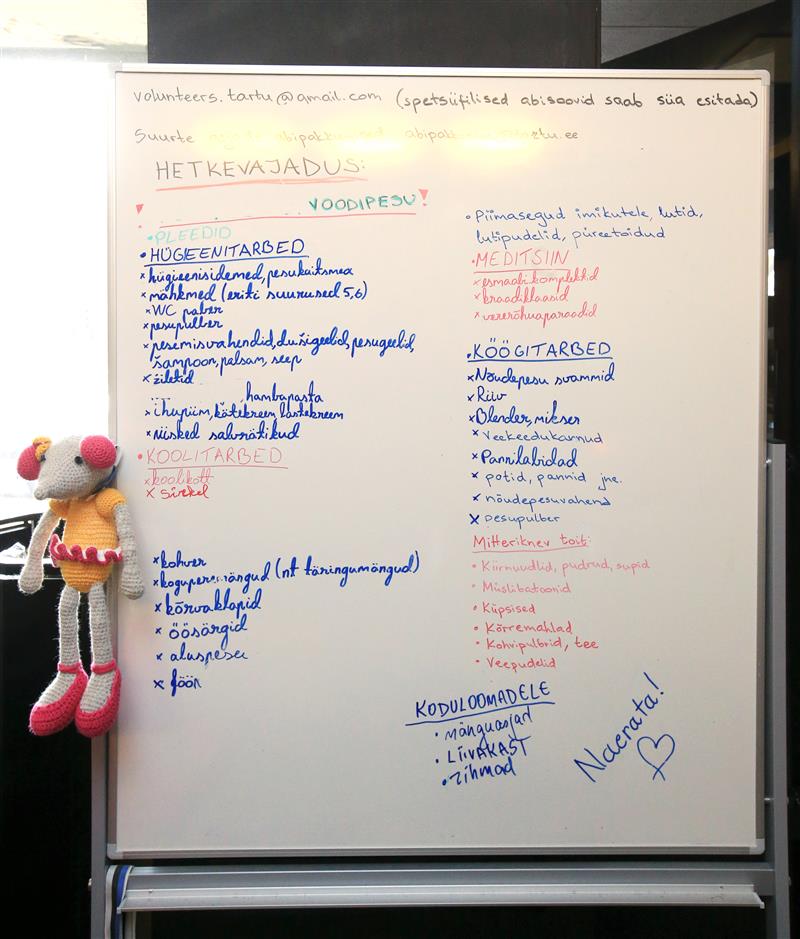 volunteers.tartu@gmail.com (spetsiifilised abisoovid saab siia esitada)
Suurte
HETKEVAJADUS:
! VOODIPESU!
• PLEEDID
• HÜGIEENITARBED
× hügieenisidemed, pesukaitsmea
× mähkmed (eriti suurused 5,6)
× WC paber
× pesupulber
× pesemisvahendid, dušigeelid, pesugeelid,
šampoon, palsam, seep
× žiletid
hambapasta
× ihupiim, kätekreem, lastekreem
× niisked salvrätikud
• KOOLITARBED
× koolikott
× sirkel
× kohver
× kogupere mängud (nt täringumängud)
× kõrvaklapid
× öösärgid
× aluspesu
× föön
• Piimasegud imikutele, lutid,
lutipudelid, püreetoidud
• MEDITSIIN
× esmaabikomplektid
× kraadiklaasid
× vererõhuaparaadid
• KÖÖGITARBED
× Nõudepesu svammid
× Riiv
× Blender, mikser
× Veekeedukannud
× Pannilabidad
× potid, pannid jne.
× nõudepesuvahend
× pesupulber
Mitteriknev toit:
• Kiirnuudlid, pudrud, supid
• Müslibatoonid
• Küpsised
• Kõrremahlad
• Kohvipulbrid, tee
• Veepudelid
KODULOOMADELE
• mänguasjad
• LIIVAKAST
• rihmad
Naerata!